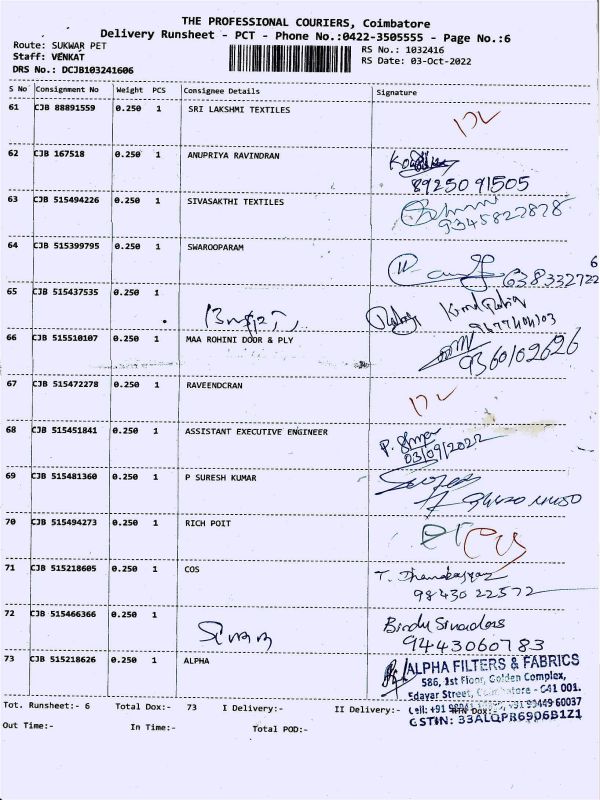 THE PROFESSIONAL COURIERS, Coimbatore
Delivery Runsheet - PCT - Phone No.:0422-3505555 - Page No.:6
Route: SUKWAR PET
Staff: VENKAT
DRS No.: DCJB103241606
RS No.: 1032416
RS Date: 03-Oct-2022
S No Consignment No Weight PCS Consignee Details Signature
61 CJB 88891559 0.250 1 SRI LAKSHMI TEXTILES
62 CJB 167518 0.250 1 ANUPRIYA RAVINDRAN
89250 91505
63 CJB 515494226 0.250 1 SIVASAKTHI TEXTILES
9345827878
64 CJB 515399795 0.250 1 SWAROOPARAM
65 CJB 515437535 0.250 1
66 CJB 515510107 0.250 1 MAA ROHINI DOOR & PLY
9360102626
67 CJB 515472278 0.250 1 RAVEENDCRAN
68 CJB 515451841 0.250 1 ASSISTANT EXECUTIVE ENGINEER
03/09/2022
69 CJB 515481360 0.250 1 P SURESH KUMAR
70 CJB 515494273 0.250 1 RICH POIT
71 CJB 515218605 0.250 1 COS
98430 22572
72 CJB 515466366 0.250 1
Bindu Sivadas
9443060783
73 CJB 515218626 0.250 1 ALPHA
ALPHA FILTERS & FABRICS
586, 1st Floor, Golden Complex,
Edayar Street, Coimbatore - 641 001.
Tot. Runsheet:- 6 Total Dox:- 73 I Delivery:- II Delivery:- NTN Dox:-
Cell: +91 +91 99449 60037
GSTIN: 33ALQPR6906B1Z1
Out Time:- In Time:- Total POD:-